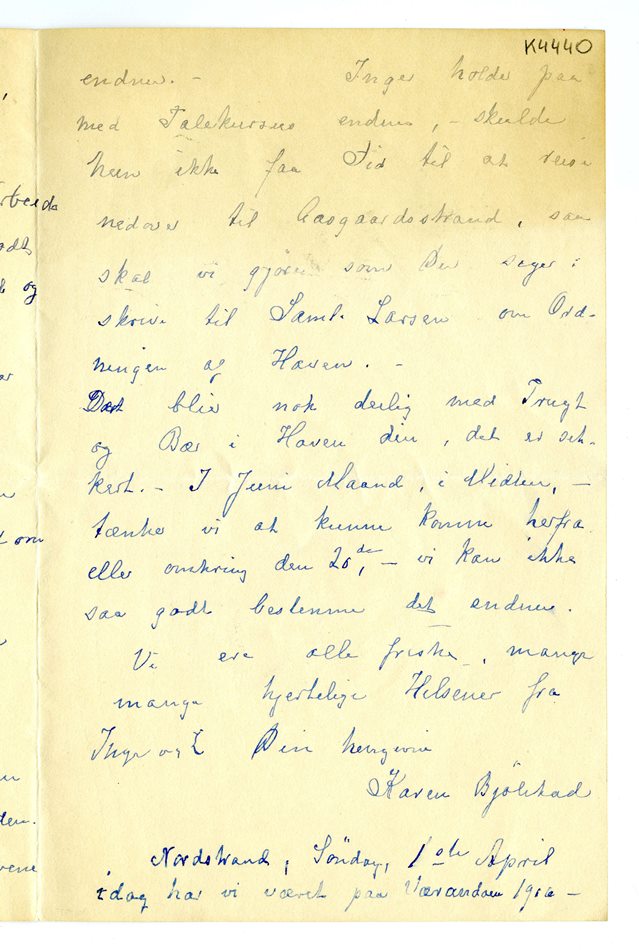 K4440
endnu. – Inger holder paa
med Talekursus endnu, – skulde
hun ikke faa Tid til at reise
nedover til Aasgaardsstrand, saa
skal vi gjøre som Du siger:
skrive til Saml. Larsen om Ord-
ningen af Haven. –
Det blir nok deilig med Frugt
og Bær i Haven din, det er sik-
kert. – I Juni Maaned, i Midten, –
tænker vi at kunne komme herfra
eller omkring den 20de, – vi kan ikke
saa godt bestemme det endnu.
Vi ere alle friske, mange
mange hjertelige Hilsener fra
Inger og Din hengivne
Karen Bjölstad
Nordstrand, Söndag, 1ste April
idag har vi været paa Værandaen 1916 –
rbeide
odt
og
ar
t om
den.
vene